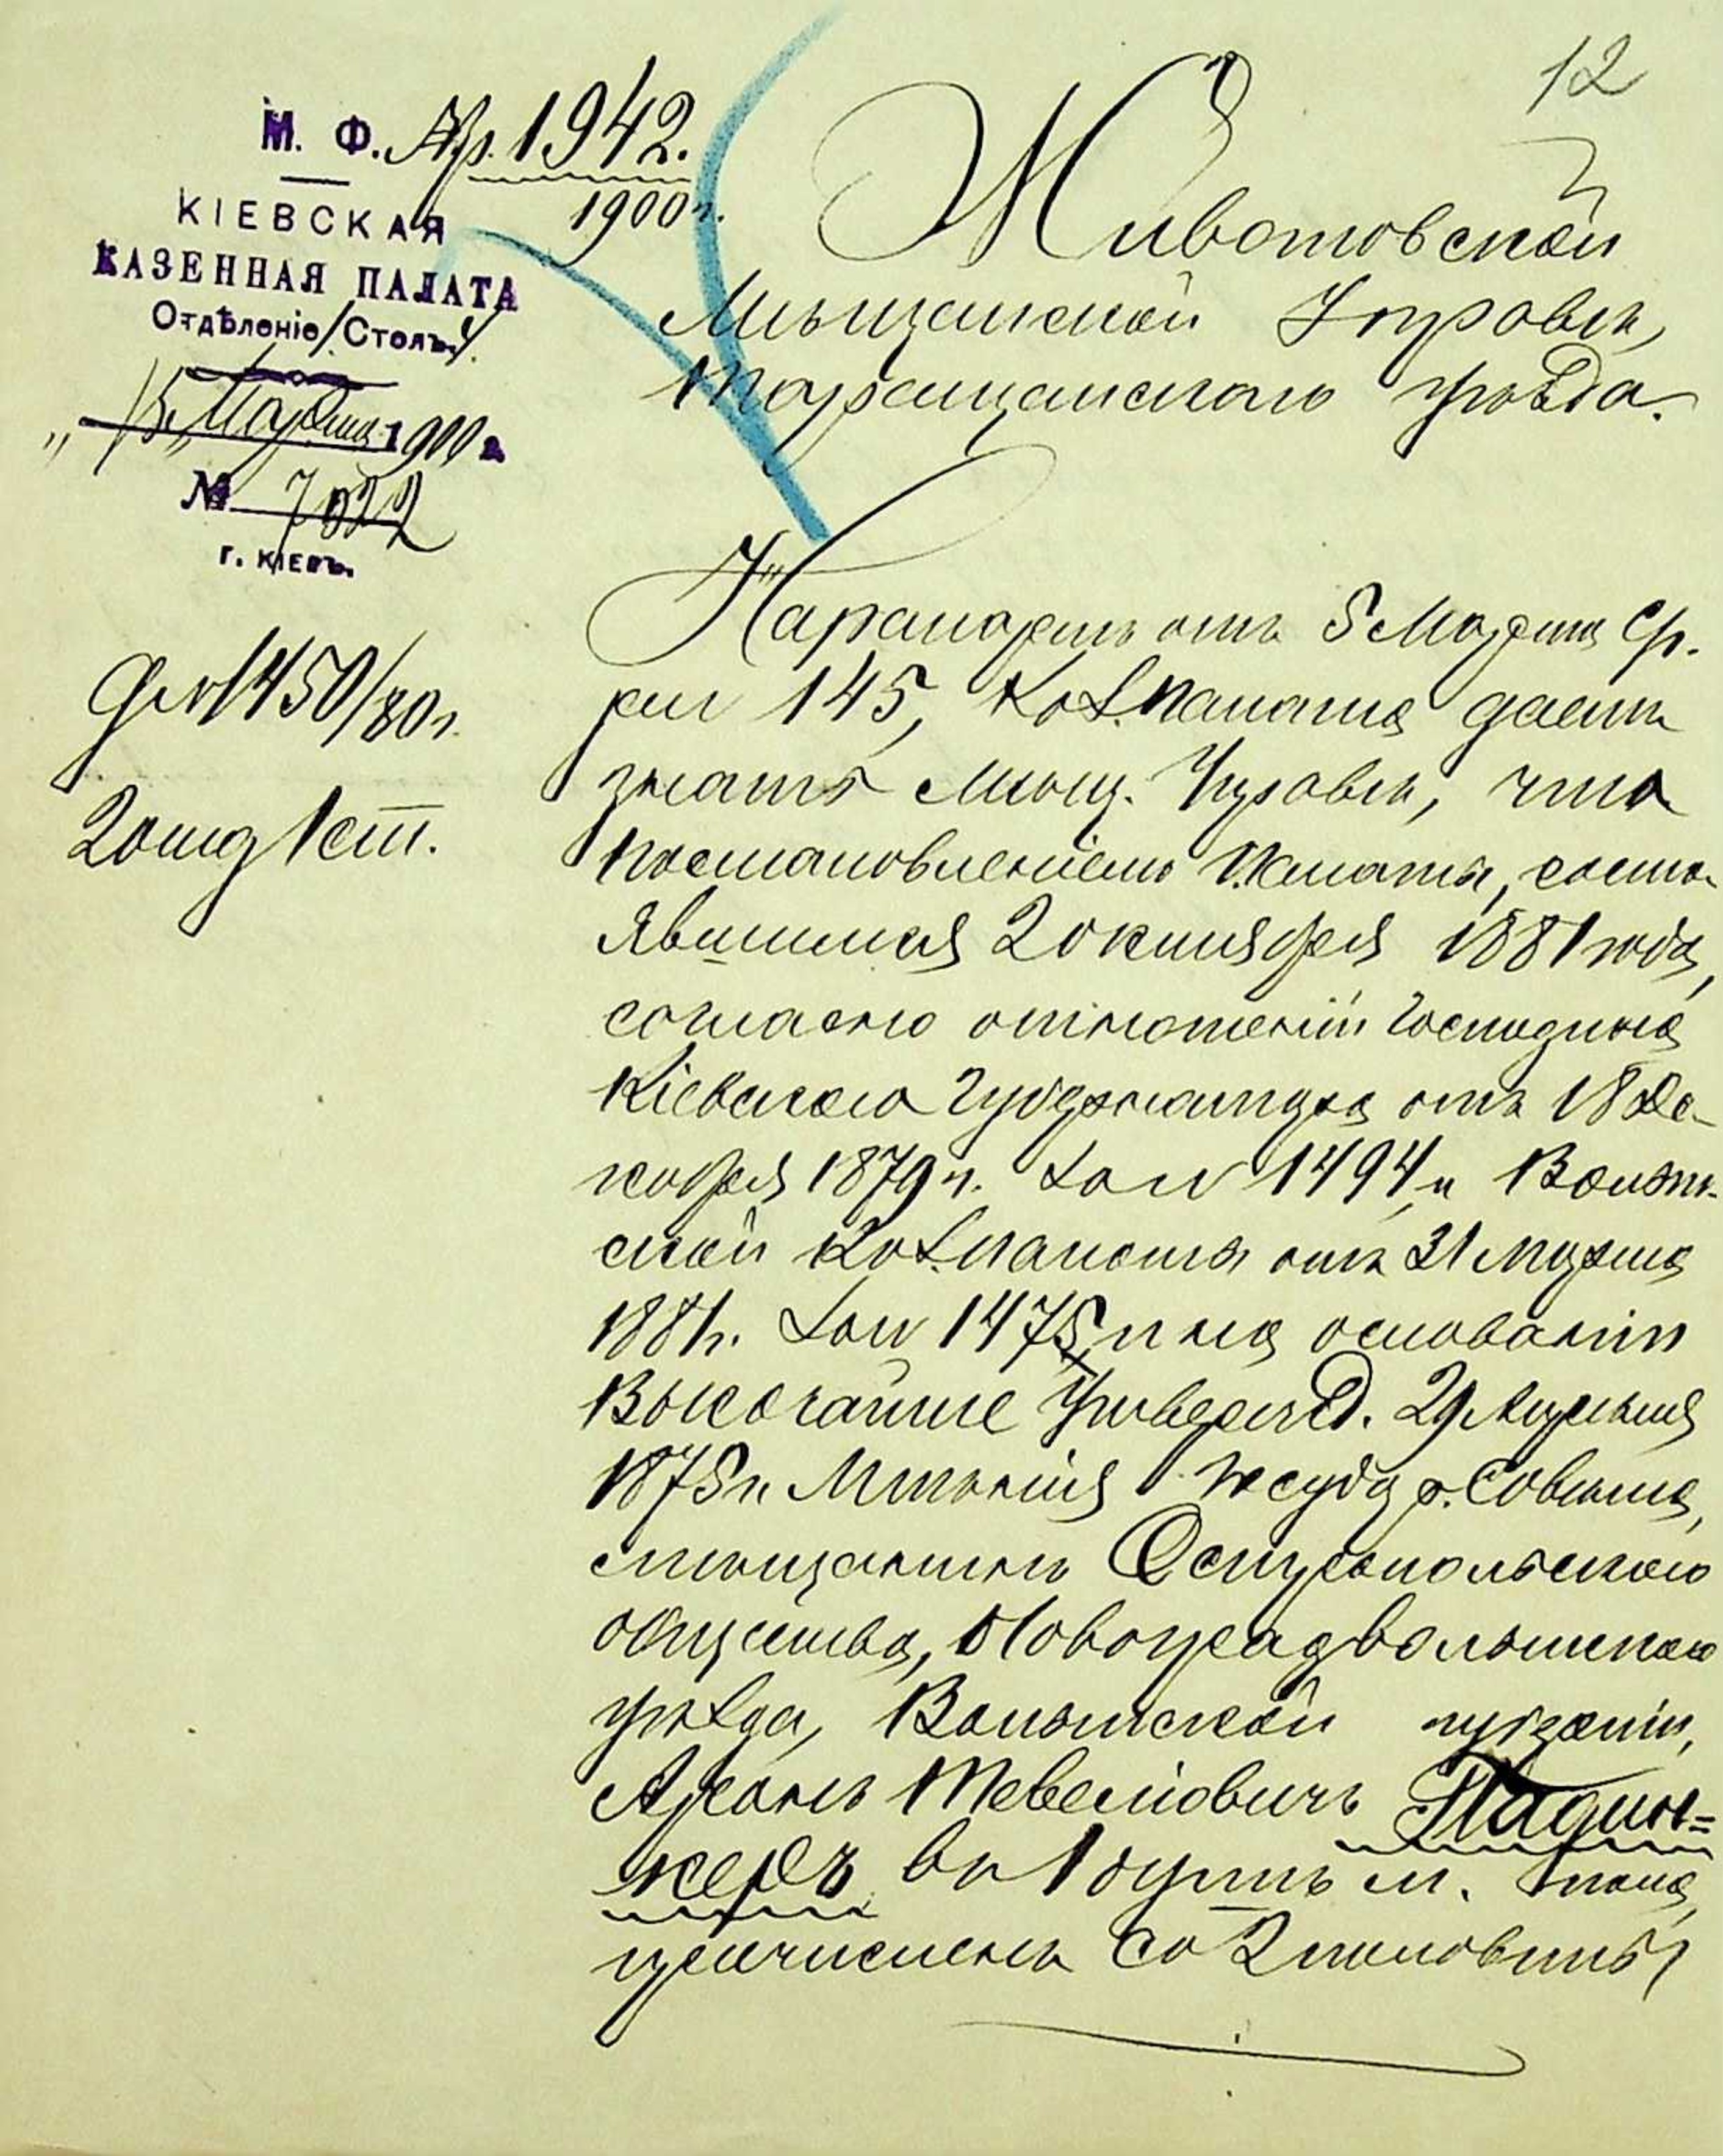 12
М. Ф. Ар. 1942.
1900 г.
КІЕВСКАЯ
КАЗЕННАЯ ПАЛАТА
Отдѣленіе / Столъ
15 Марта 1900 г.
№ 7022
г. КІЕВЪ.
1450/80 г.
2 отд 1 ст.
Животовской
Мѣщанской Управѣ,
Таращанскаго уѣзда.
На рапортъ отъ 5 Марта с/г.
за № 145, Каз. Палата даетъ
знать Мѣщ. Управѣ, что
постановленіемъ Палаты, состо-
явшимся 2 октября 1881 года,
согласно отношеній Господина
Кіевскаго Губернатора отъ 18 Де-
кабря 1879 г. за № 1494 и Волын-
ской Каз. Палаты отъ 31 Марта
1881 г. за № 1475 и на основаніи
Высочайше утвержд. 29 Апрѣля
1875 г. Мнѣнія Государ. Совѣта,
мѣщанинъ Остропольскаго
общества, Новоградволынскаго
уѣзда, Волынской губерніи,
Аронъ Тевеліовичъ
въ 1 душѣ м. пола,
причисленъ со 2 половины